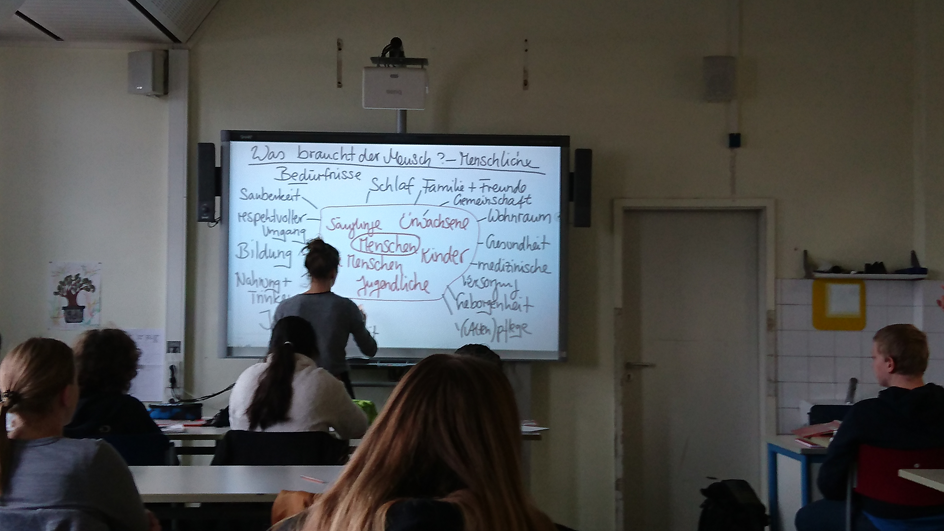 Was braucht der Mensch? – Menschliche
Bedürfnisse
Schlaf
Familie + Freunde
Gemeinschaft
Sauberkeit
respektvoller
Umgang
Bildung
Nahrung +
Trinke
Säuglinge
Erwachsene
Menschen
Kinder
Menschen
Jugendliche
Wohnraum
Gesundheit
medizinische
Versorgung
Geborgenheit
(Alten)pflege